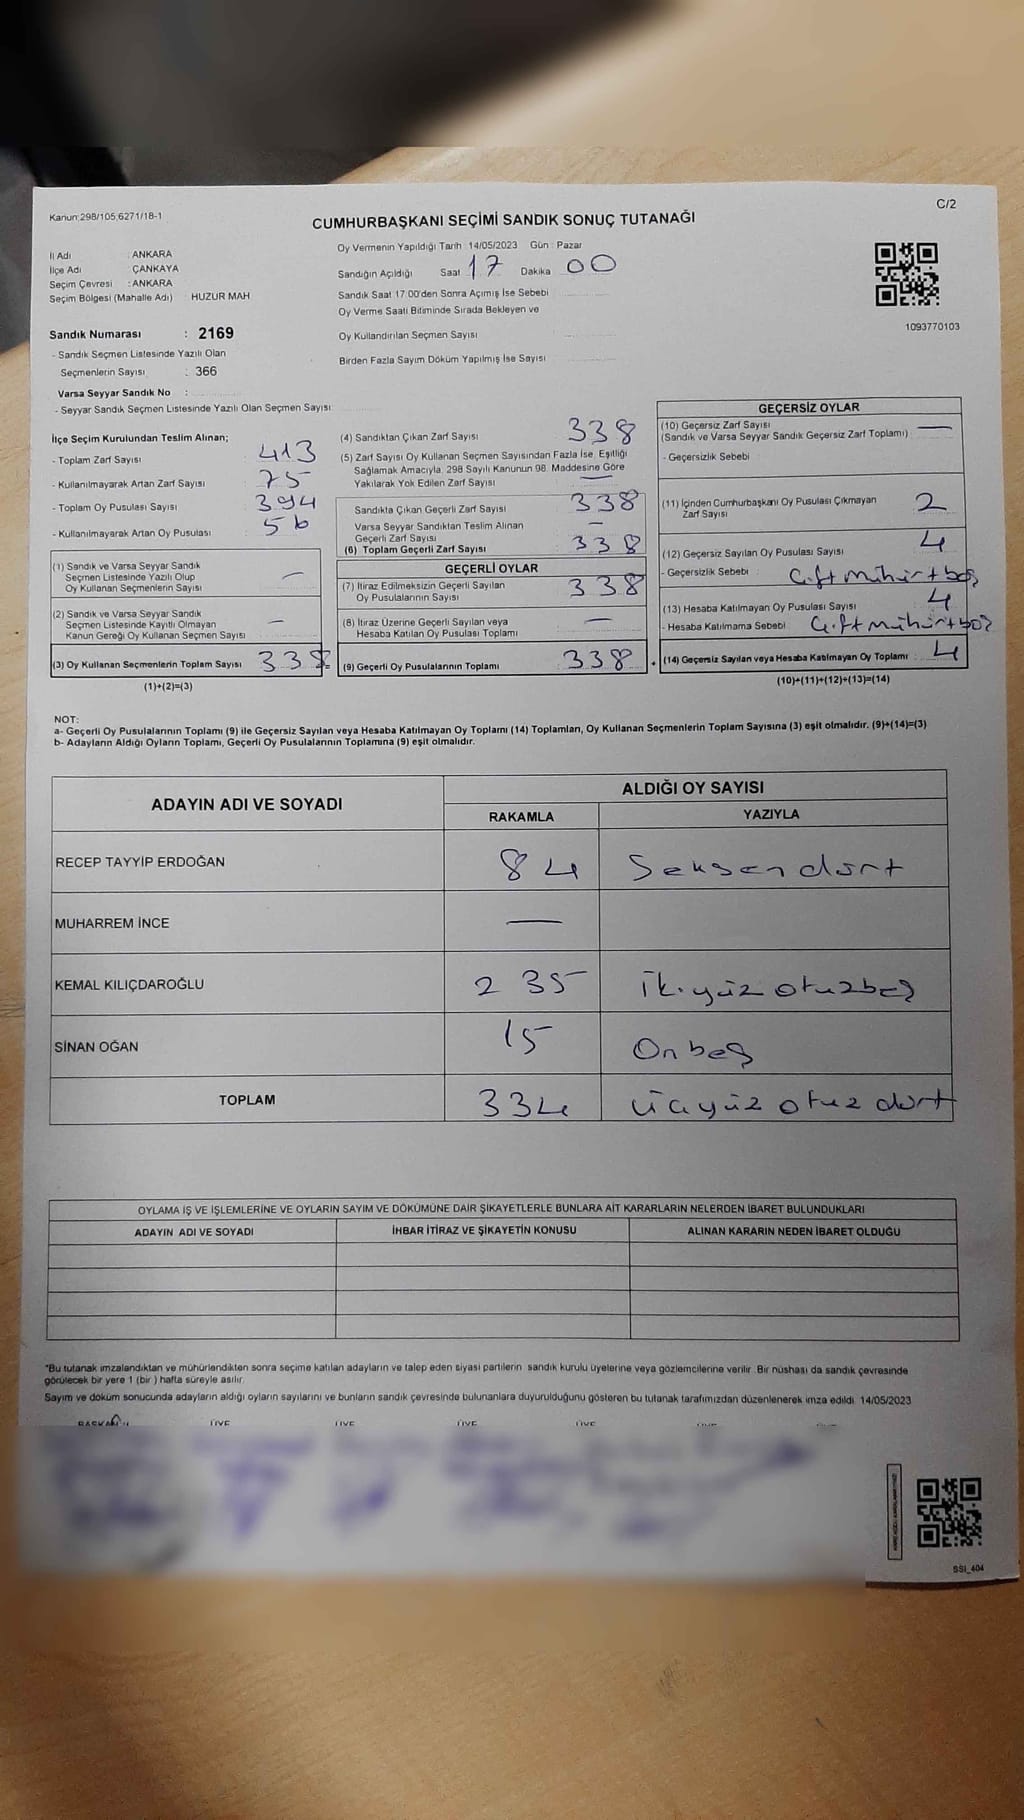 Kanun:298/105;6271/18-1
C/2
CUMHURBAŞKANI SEÇİMİ SANDIK SONUÇ TUTANAĞI
İl Adı : ANKARA
İlçe Adı : ÇANKAYA
Seçim Çevresi : ANKARA
Seçim Bölgesi (Mahalle Adı) : HUZUR MAH
Sandık Numarası : 2169
- Sandık Seçmen Listesinde Yazılı Olan
Seçmenlerin Sayısı : 366
Varsa Seyyar Sandık No :
- Seyyar Sandık Seçmen Listesinde Yazılı Olan Seçmen Sayısı:
Oy Vermenin Yapıldığı Tarih : 14/05/2023 Gün : Pazar
Sandığın Açıldığı Saat 17 Dakika 00
Sandık Saat 17:00'den Sonra Açımış İse Sebebi
Oy Verme Saati Bitiminde Sırada Bekleyen ve
Oy Kullandırılan Seçmen Sayısı
Birden Fazla Sayım Döküm Yapılmış İse Sayısı
1093770103
İlçe Seçim Kurulundan Teslim Alınan;
- Toplam Zarf Sayısı 413
- Kullanılmayarak Artan Zarf Sayısı 75
- Toplam Oy Pusulası Sayısı 394
- Kullanılmayarak Artan Oy Pusulası 56
(1) Sandık ve Varsa Seyyar Sandık
Seçmen Listesinde Yazılı Olup
Oy Kullanan Seçmenlerin Sayısı —
(2) Sandık ve Varsa Seyyar Sandık
Seçmen Listesinde Kayıtlı Olmayan
Kanun Gereği Oy Kullanan Seçmen Sayısı —
(3) Oy Kullanan Seçmenlerin Toplam Sayısı 338
(1)+(2)=(3)
(4) Sandıktan Çıkan Zarf Sayısı 338
(5) Zarf Sayısı Oy Kullanan Seçmen Sayısından Fazla İse, Eşitliği
Sağlamak Amacıyla, 298 Sayılı Kanunun 98. Maddesine Göre
Yakılarak Yok Edilen Zarf Sayısı —
Sandıkta Çıkan Geçerli Zarf Sayısı 338
Varsa Seyyar Sandıktan Teslim Alınan
Geçerli Zarf Sayısı —
(6) Toplam Geçerli Zarf Sayısı 338
GEÇERLİ OYLAR
(7) İtiraz Edilmeksizin Geçerli Sayılan
Oy Pusulalarının Sayısı 338
(8) İtiraz Üzerine Geçerli Sayılan veya
Hesaba Katılan Oy Pusulası Toplamı —
(9) Geçerli Oy Pusulalarının Toplamı 338 +
GEÇERSİZ OYLAR
(10) Geçersiz Zarf Sayısı —
(Sandık ve Varsa Seyyar Sandık Geçersiz Zarf Toplamı)
- Geçersizlik Sebebi
(11) İçinden Cumhurbaşkanı Oy Pusulası Çıkmayan
Zarf Sayısı 2
(12) Geçersiz Sayılan Oy Pusulası Sayısı 4
- Geçersizlik Sebebi : Çift mühür+boş
(13) Hesaba Katılmayan Oy Pusulası Sayısı 4
- Hesaba Katılmama Sebebi Çift mühür+boş
(14) Geçersiz Sayılan veya Hesaba Katılmayan Oy Toplamı 4
(10)+(11)+(12)+(13)=(14)
NOT:
a- Geçerli Oy Pusulalarının Toplamı (9) ile Geçersiz Sayılan veya Hesaba Katılmayan Oy Toplamı (14) Toplamları, Oy Kullanan Seçmenlerin Toplam Sayısına (3) eşit olmalıdır. (9)+(14)=(3)
b- Adayların Aldığı Oyların Toplamı, Geçerli Oy Pusulalarının Toplamına (9) eşit olmalıdır.
ADAYIN ADI VE SOYADI
ALDIĞI OY SAYISI
RAKAMLA YAZIYLA
RECEP TAYYİP ERDOĞAN 84 Seksen dört
MUHARREM İNCE —
KEMAL KILIÇDAROĞLU 235 İkiyüz otuzbeş
SİNAN OĞAN 15 Onbeş
TOPLAM 334 üçyüz otuz dört
OYLAMA İŞ VE İŞLEMLERİNE VE OYLARIN SAYIM VE DÖKÜMÜNE DAİR ŞİKAYETLERLE BUNLARA AİT KARARLARIN NELERDEN İBARET BULUNDUKLARI
ADAYIN ADI VE SOYADI İHBAR İTİRAZ VE ŞİKAYETİN KONUSU ALINAN KARARIN NEDEN İBARET OLDUĞU
*Bu tutanak imzalandıktan ve mühürlendikten sonra seçime katılan adayların ve talep eden siyasi partilerin sandık kurulu üyelerine veya gözlemcilerine verilir. Bir nüshası da sandık çevresinde
görülecek bir yere 1 (bir) hafta süreyle asılır.
Sayım ve döküm sonucunda adayların aldığı oyların sayılarını ve bunların sandık çevresinde bulunanlara duyurulduğunu gösteren bu tutanak tarafımızdan düzenlenerek imza edildi. 14/05/2023
BAŞKAN ÜYE ÜYE ÜYE ÜYE ÜYE
SSI_404